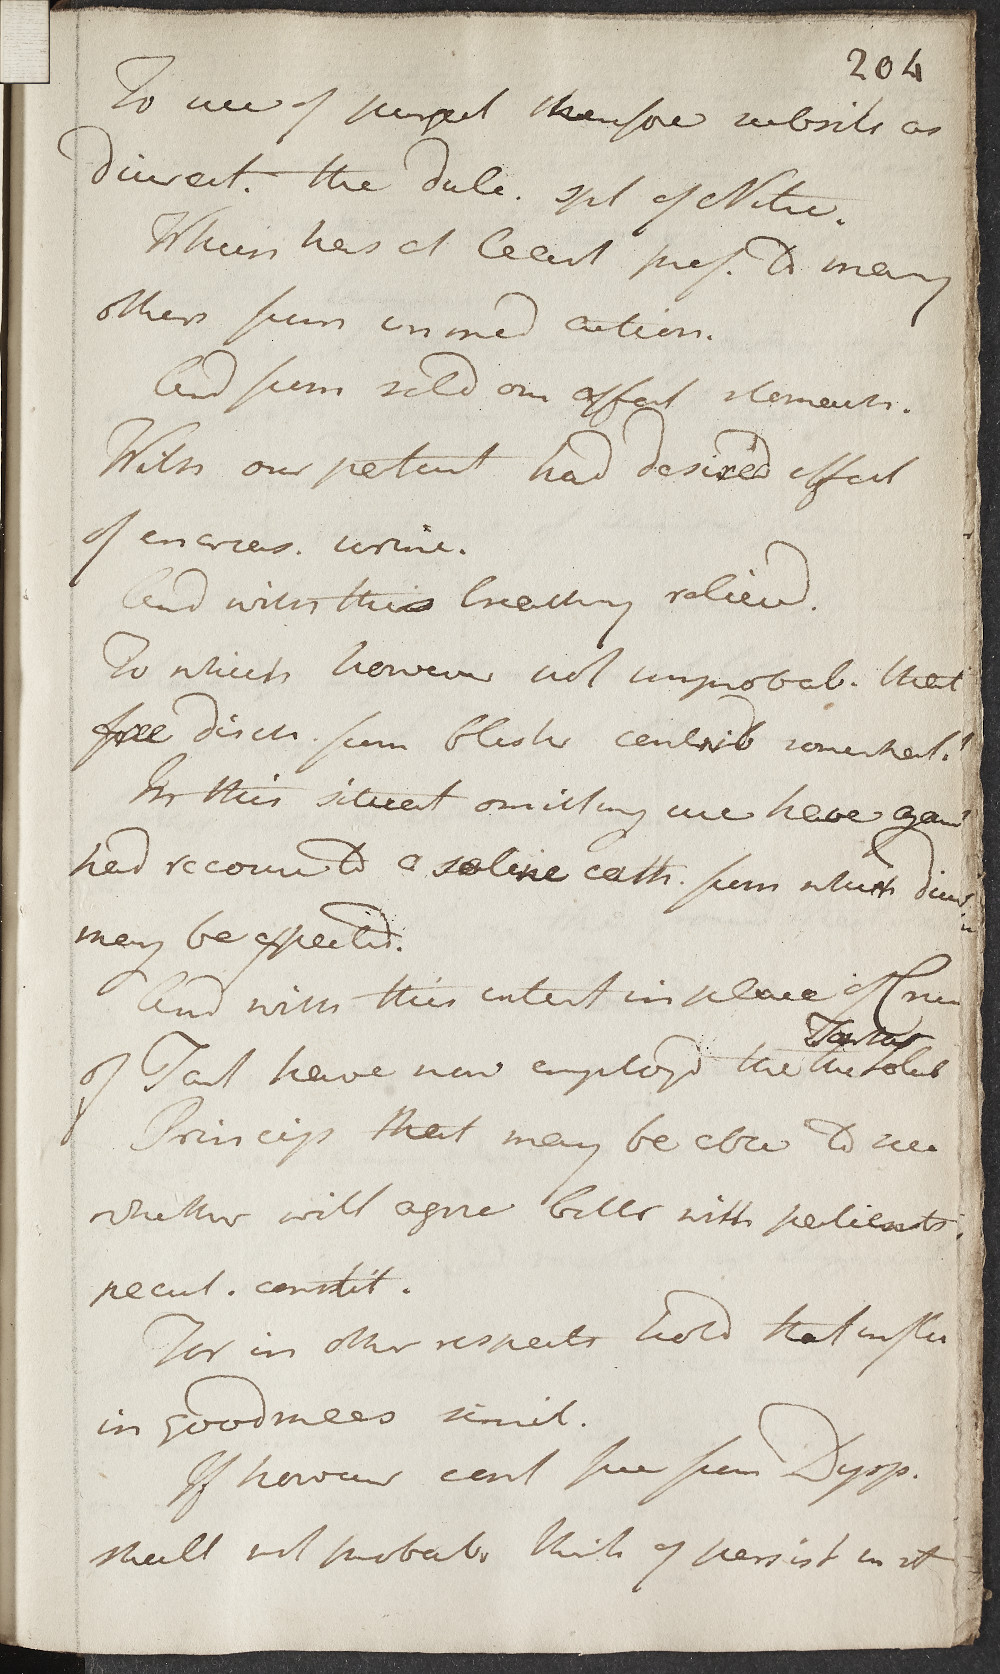 204
To use of purgat therefore substit as
diuret. the dulc. spt of Nitre.
Which has at least pref. to many
others from immed action.
And from seld om affect stomach.
With our patient had desired effect
of encreas. urine.
And with this breathing reliev'd.
To which however not improbab. that
free disch. from blister contrib somewhat.
In this situat omitting use have again
had recourse to a saline cath. from which diur.
may be expected.
And with this intent in place of Crem
of Tart have now employd the the solub
Tartar
Princip that may be able to see
whether will agree better with patients
pecul. constit.
For in other respects hold that
in goodmees simil.
If however cant free from Dysp.
shall not probab. think of persist in it